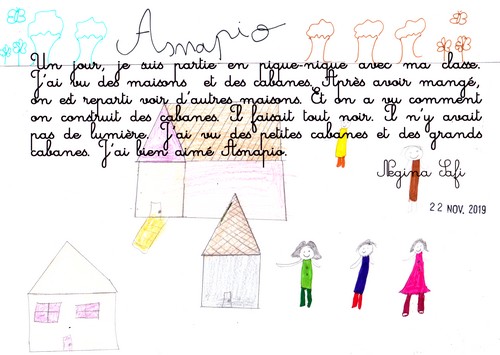 Asnapio
Un jour, je suis partie en pique-nique avec ma classe.
J'ai vu des maisons et des cabanes. Après avoir mangé,
on est reparti voir d'autres maisons. Et on a vu comment
on construit des cabanes. Il faisait tout noir. Il n'y avait
pas de lumière. J'ai vu des petites cabanes et des grands
cabanes. J'ai bien aimé Asnapio.
Negina Safi
22 NOV. 2019